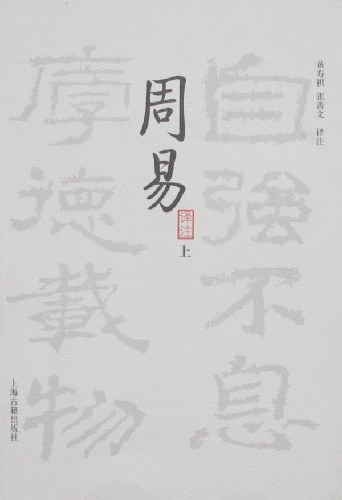 黄寿祺 张善文 译注
自強不息
周易
译注
上
厚德載物
上海古籍出版社